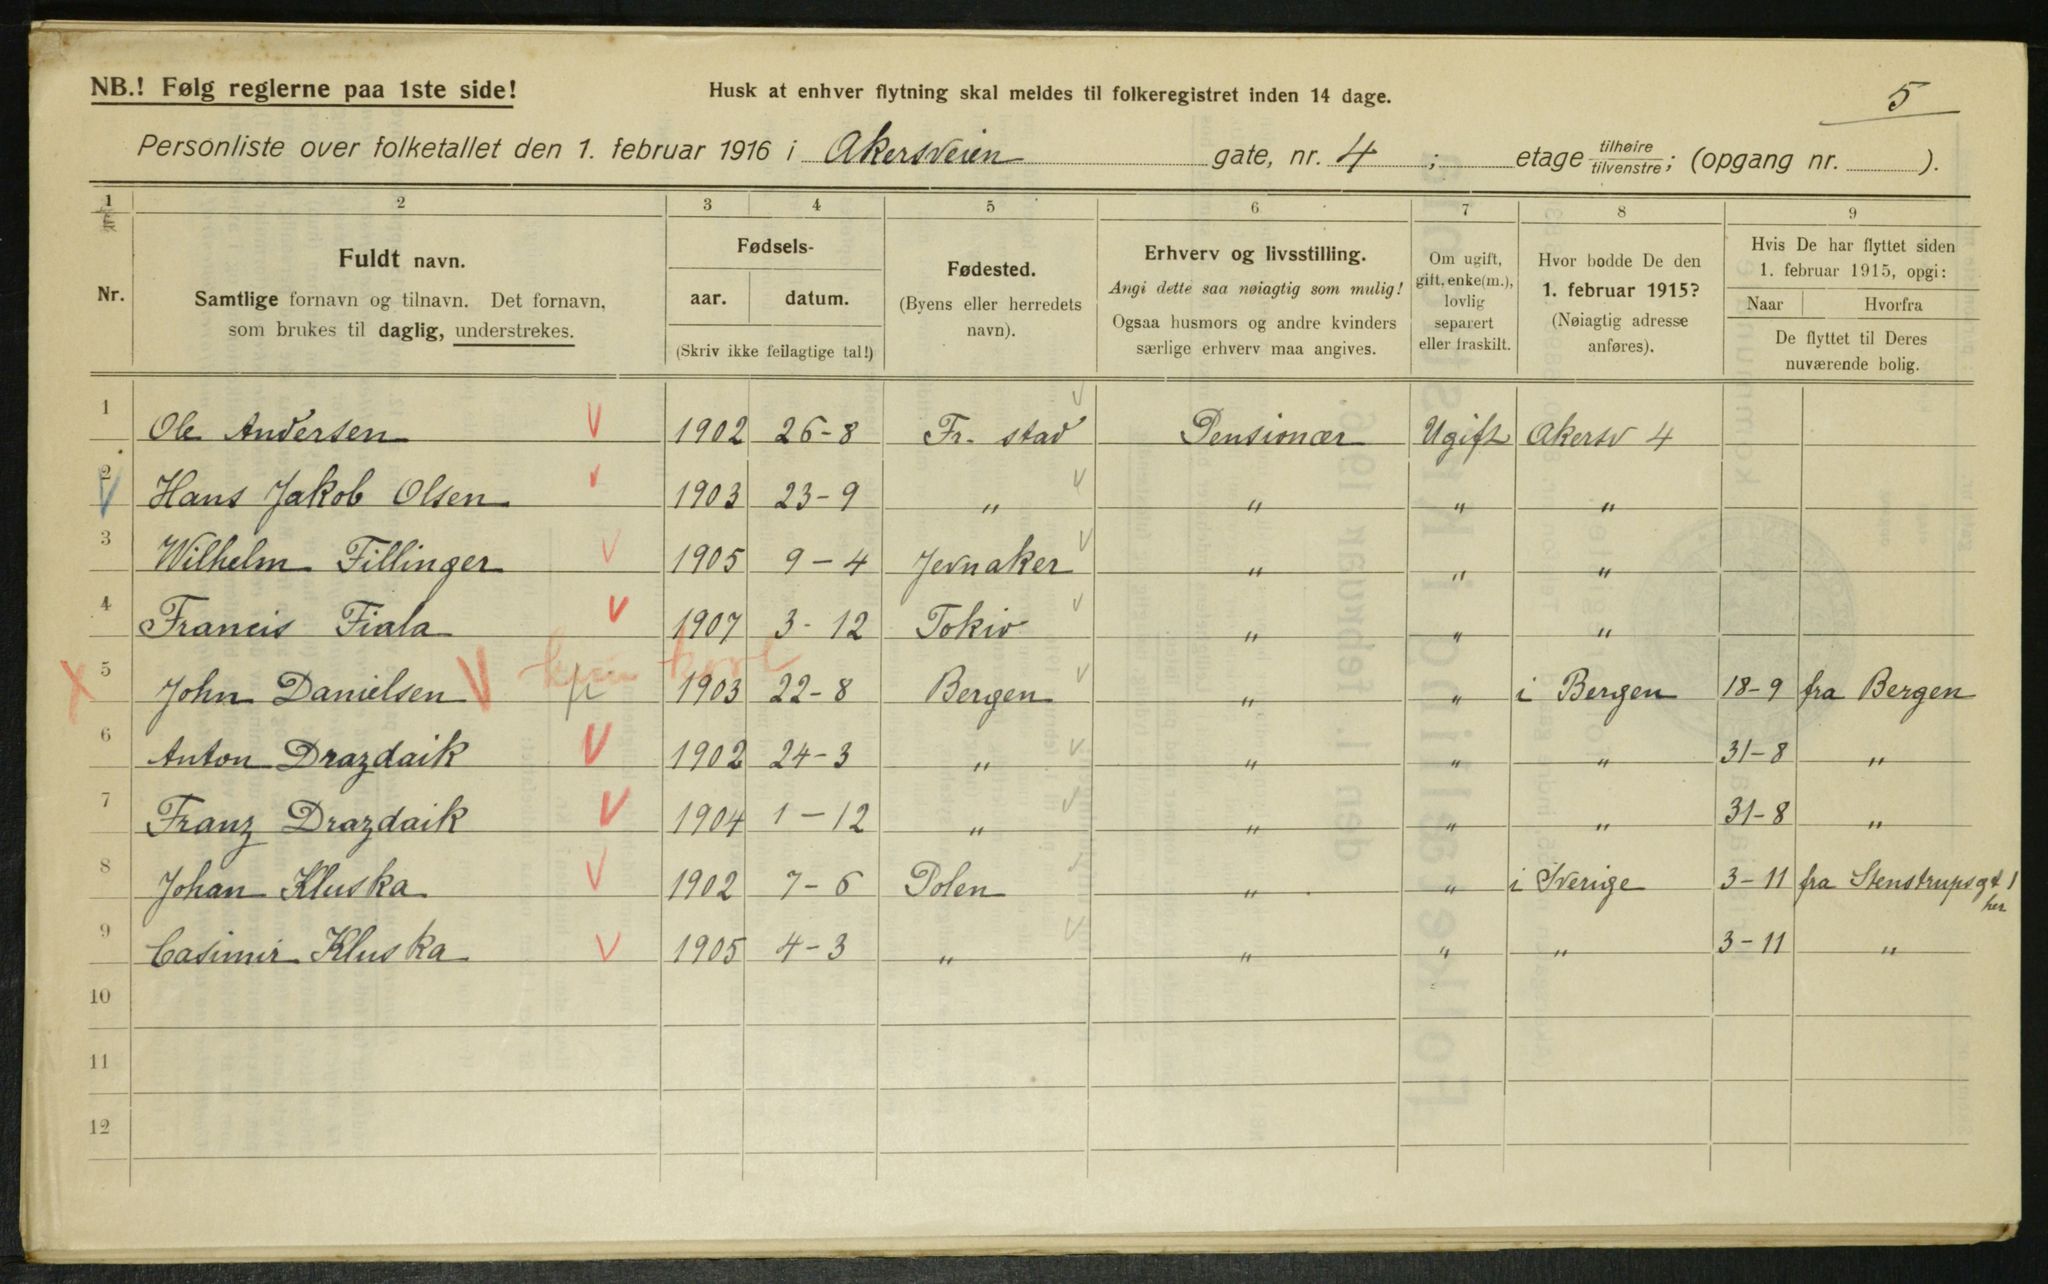 NB.! Følg reglerne paa 1ste side!
Husk at enhver flytning skal meldes til folkeregistret inden 14 dage.
5
Personliste over folketallet den 1. februar 1916 i Akersveien gate, nr. 4 ; etage tilhøire/tilvenstre; (opgang nr. ).
1 2 3 4 5 6 7 8 9
Nr.
Fuldt navn.
Samtlige fornavn og tilnavn. Det fornavn,
som brukes til daglig, understrekes.
Fødsels-
aar. datum.
(Skriv ikke feilagtige tal!)
Fødested.
(Byens eller herredets
navn).
Erhverv og livsstilling.
Angi dette saa nøiagtig som mulig!
Ogsaa husmors og andre kvinders
særlige erhverv maa angives.
Om ugift,
gift, enke(m.),
lovlig
separert
eller fraskilt.
Hvor bodde De den
1. februar 1915?
(Nøiagtig adresse
anføres).
Hvis De har flyttet siden
1. februar 1915, opgi:
Naar Hvorfra
De flyttet til Deres
nuværende bolig.
1 Ole Andersen 1902 26-8 Fr. stad Pensionær Ugift Akersv 4
2 Hans Jakob Olsen 1903 23-9 " " " "
3 Wilhelm Fillinger 1905 9-4 Jevnaker " " "
4 Francis Fiala 1907 3-12 Tokio " " "
5 John Danielsen 1903 22-8 Bergen " " i Bergen 18-9 fra Bergen
6 Anton Drazdaik 1902 24-3 " " " " 31-8 "
7 Franz Drazdaik 1904 1-12 " " " " 31-8 "
8 Johan Kluska 1902 7-6 Polen " " i Sverige 3-11 fra Stenstrupsgt 1
her
9 Casimir Kluska 1905 4-3 " " " " 3-11 "
10
11
12